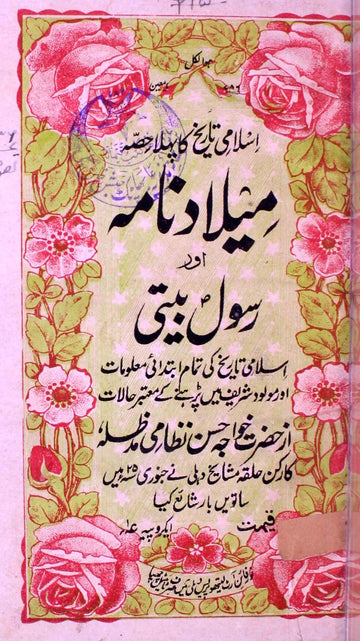 ہوالکل
۷۸۶
اسلامی تاریخ کا پہلا حصہ
میلاد نامہ
اور
رسول بیتی
اسلامی تاریخ کی تمام ابتدائی معلومات
اور مولود شریف میں پڑہنے کے معتبر حالات
از حضرت خواجہ حسن نظامی مدظلہٗ
کارکن حلقہ مشایخ دہلی نے جنوری ۲۵ میں
ساتویں بار شائع کیا
قیمت ایک روپیہ